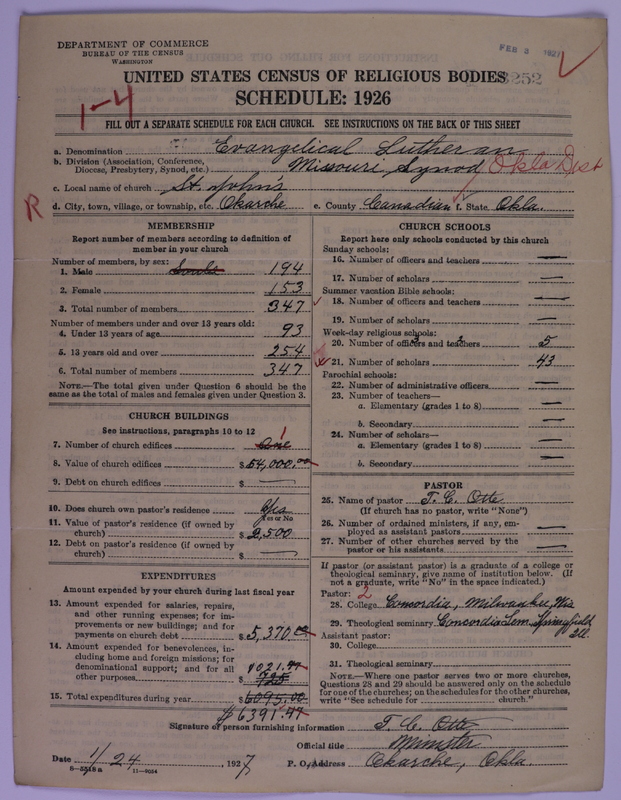 DEPARTMENT OF COMMERCE
BUREAU OF THE CENSUS
WASHINGTON
FEB 3 1927
3252
UNITED STATES CENSUS OF RELIGIOUS BODIES
SCHEDULE: 1926
1-4
FILL OUT A SEPARATE SCHEDULE FOR EACH CHURCH. SEE INSTRUCTIONS ON THE BACK OF THIS SHEET
a. Denomination Evangelical Lutheran
b. Division (Association, Conference, Diocese, Presbytery, Synod, etc.) Missouri Synod Okla Dist
c. Local name of church St. John's
R
d. City, town, village, or township, etc. Okarche e. County Canadian f. State Okla.
MEMBERSHIP
Report number of members according to definition of
member in your church
Number of members, by sex:
1. Male Souls 194
2. Female 153
3. Total number of members 347
Number of members under and over 13 years old:
4. Under 13 years of age 93
5. 13 years old and over 254
6. Total number of members 347
NOTE.—The total given under Question 6 should be the
same as the total of males and females given under Question 3.
CHURCH BUILDINGS
See instructions, paragraphs 10 to 12
7. Number of church edifices One 1
8. Value of church edifices $54,000.00
9. Debt on church edifices $ —
10. Does church own pastor's residence Yes
Yes or No
11. Value of pastor's residence (if owned by
church) $2,500
12. Debt on pastor's residence (if owned by
church) $ —
EXPENDITURES
Amount expended by your church during last fiscal year
13. Amount expended for salaries, repairs,
and other running expenses; for im-
provements or new buildings; and for
payments on church debt $5,370.00
14. Amount expended for benevolences, in-
cluding home and foreign missions; for
denominational support; and for all 1021.47
other purposes $ 725
15. Total expenditures during year $6095.00
$6391.47
CHURCH SCHOOLS
Report here only schools conducted by this church
Sunday schools:
16. Number of officers and teachers —
17. Number of scholars —
Summer vacation Bible schools:
18. Number of officers and teachers —
19. Number of scholars —
Week-day religious schools:
20. Number of officers and teachers 5
21. Number of scholars 43
Parochial schools:
22. Number of administrative officers —
23. Number of teachers—
a. Elementary (grades 1 to 8) —
b. Secondary —
24. Number of scholars—
a. Elementary (grades 1 to 8) —
b. Secondary —
PASTOR
25. Name of pastor T. C. Otte
(If church has no pastor, write "None")
26. Number of ordained ministers, if any, em-
ployed as assistant pastors —
27. Number of other churches served by the
pastor or his assistants —
If pastor (or assistant pastor) is a graduate of a college or
theological seminary, give name of institution below. (If
not a graduate, write "No" in the space indicated.)
Pastor: 2
28. College Concordia, Milwaukee, Wis
29. Theological seminary Concordia Sem. Springfield
Ill
Assistant pastor:
30. College
31. Theological seminary
NOTE.—Where one pastor serves two or more churches,
Questions 28 and 29 should be answered only on the schedule
for one of the churches; on the schedules for the other churches,
write "See schedule for church."
Signature of person furnishing information T. C. Otte
Official title Minister
Date 1/24, 1927 P. O. Address Okarche, Okla.
11-9084